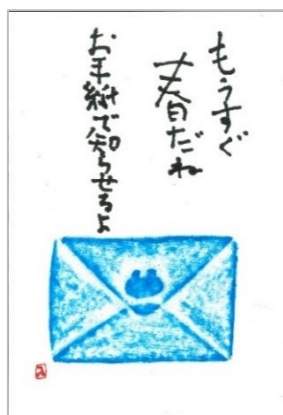 もうすぐ
春だね
お手紙で知らせるよ